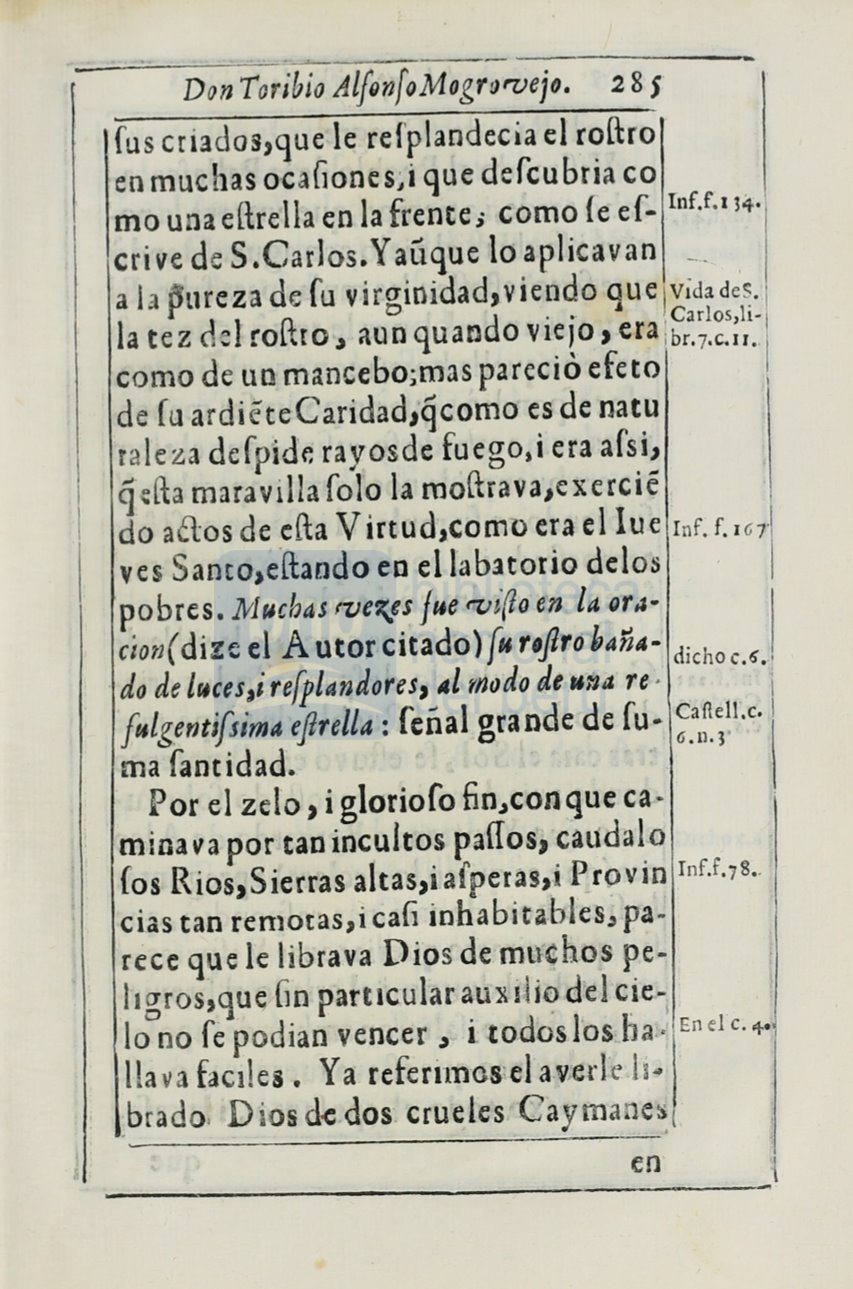 Don Toribio Alſonſo Mogrovejo. 285
ſus criados,que le reſplandecia el roſtro
en muchas ocaſiones,i que deſcubria co
mo una eſtrella en la frente; como ſe eſ-
crive de S.Carlos.Y aũque lo aplicavan
a la pureza de ſu virginidad,viendo que
la tez del roſtro, aun quando viejo, era
como de un mancebo;mas pareciò efeto
de ſu ardiẽte Caridad,q̃ como es de natu
raleza deſpide rayos de fuego,i era aſsi,
q̃ eſta maravilla ſolo la moſtrava,exerciẽ
do actos de eſta Virtud,como era el Iue
ves Santo,eſtando en el labatorio delos
pobres. Muchas vezes fue viſto en la ora-
cion(dize el Autor citado) ſu roſtro baña-
do de luces,i reſplandores, al modo de una re
fulgentiſsima eſtrella : ſeñal grande de ſu-
ma ſantidad.
Por el zelo, i glorioſo fin,con que ca-
minava por tan incultos paſſos, caudalo
ſos Rios,Sierras altas,i aſperas,i Provin
cias tan remotas,i caſi inhabitables, pa-
rece que le librava Dios de muchos pe-
ligros,que ſin particular auxilio del cie-
lo no ſe podian vencer , i todos los ha-
llava faciles. Ya referimos el averle li-
brado Dios de dos crueles Caymanes
en
Inf.f.134.
Vida de S.
Carlos,li-
br.7.c.11.
Inf. f.167
dicho c.6.
Caſtell.c.
6.n.3
Inf.f.78.
En el c. 4.